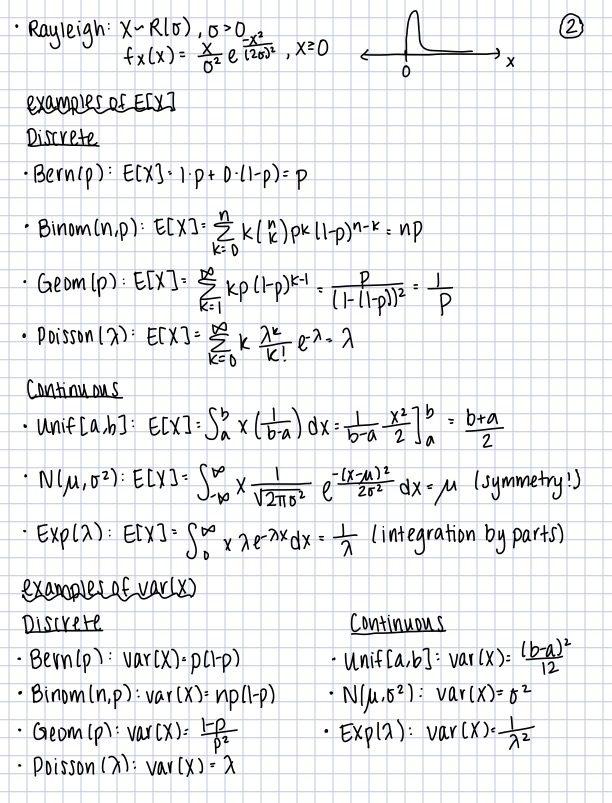 · Rayleigh: X~R(σ), σ>0 ②
f_X(x) = x/σ² e^(-x²/(2σ)²), x≥0
0 x
examples of E[X]
Discrete
· Bern(p): E[X] = 1·p + 0·(1-p) = p
· Binom(n,p): E[X] = Σ_{k=0}^{n} k (n k) p^k (1-p)^{n-k} = np
· Geom(p): E[X] = Σ_{k=1}^{∞} kp(1-p)^{k-1} = p/(1-(1-p))² = 1/p
· Poisson(λ): E[X] = Σ_{k=0}^{∞} k λ^k/k! e^{-λ} = λ
Continuous
· Unif[a,b]: E[X] = ∫_a^b x (1/(b-a)) dx = 1/(b-a) x²/2 ]_a^b = (b+a)/2
· N(μ,σ²): E[X] = ∫_{-∞}^{∞} x 1/√(2πσ²) e^{-(x-μ)²/2σ²} dx = μ (symmetry!)
· Exp(λ): E[X] = ∫_0^∞ x λe^{-λx} dx = 1/λ (integration by parts)
examples of var(X)
Discrete
· Bern(p): var(X) = p(1-p)
· Binom(n,p): var(X) = np(1-p)
· Geom(p): var(X) = (1-p)/p²
· Poisson(λ): var(X) = λ
Continuous
· Unif[a,b]: var(X) = (b-a)²/12
· N(μ,σ²): var(X) = σ²
· Exp(λ): var(X) = 1/λ²